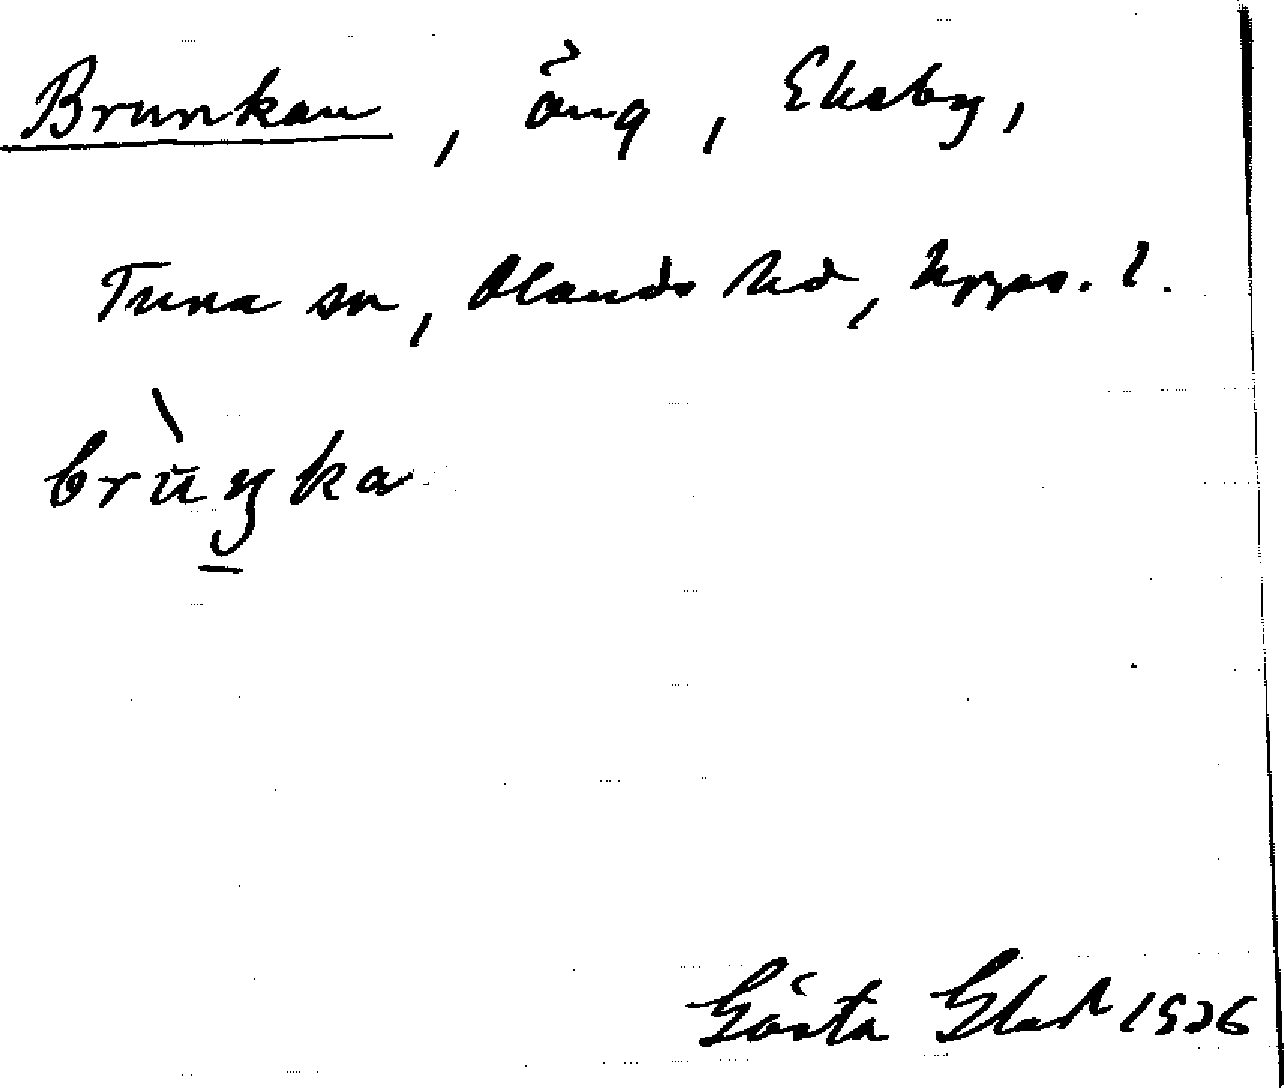 Brunkan, äng, Eksby,
Tuna sn, Olands hd, Upps. l.
brùŋka
Gösta Glad 1926